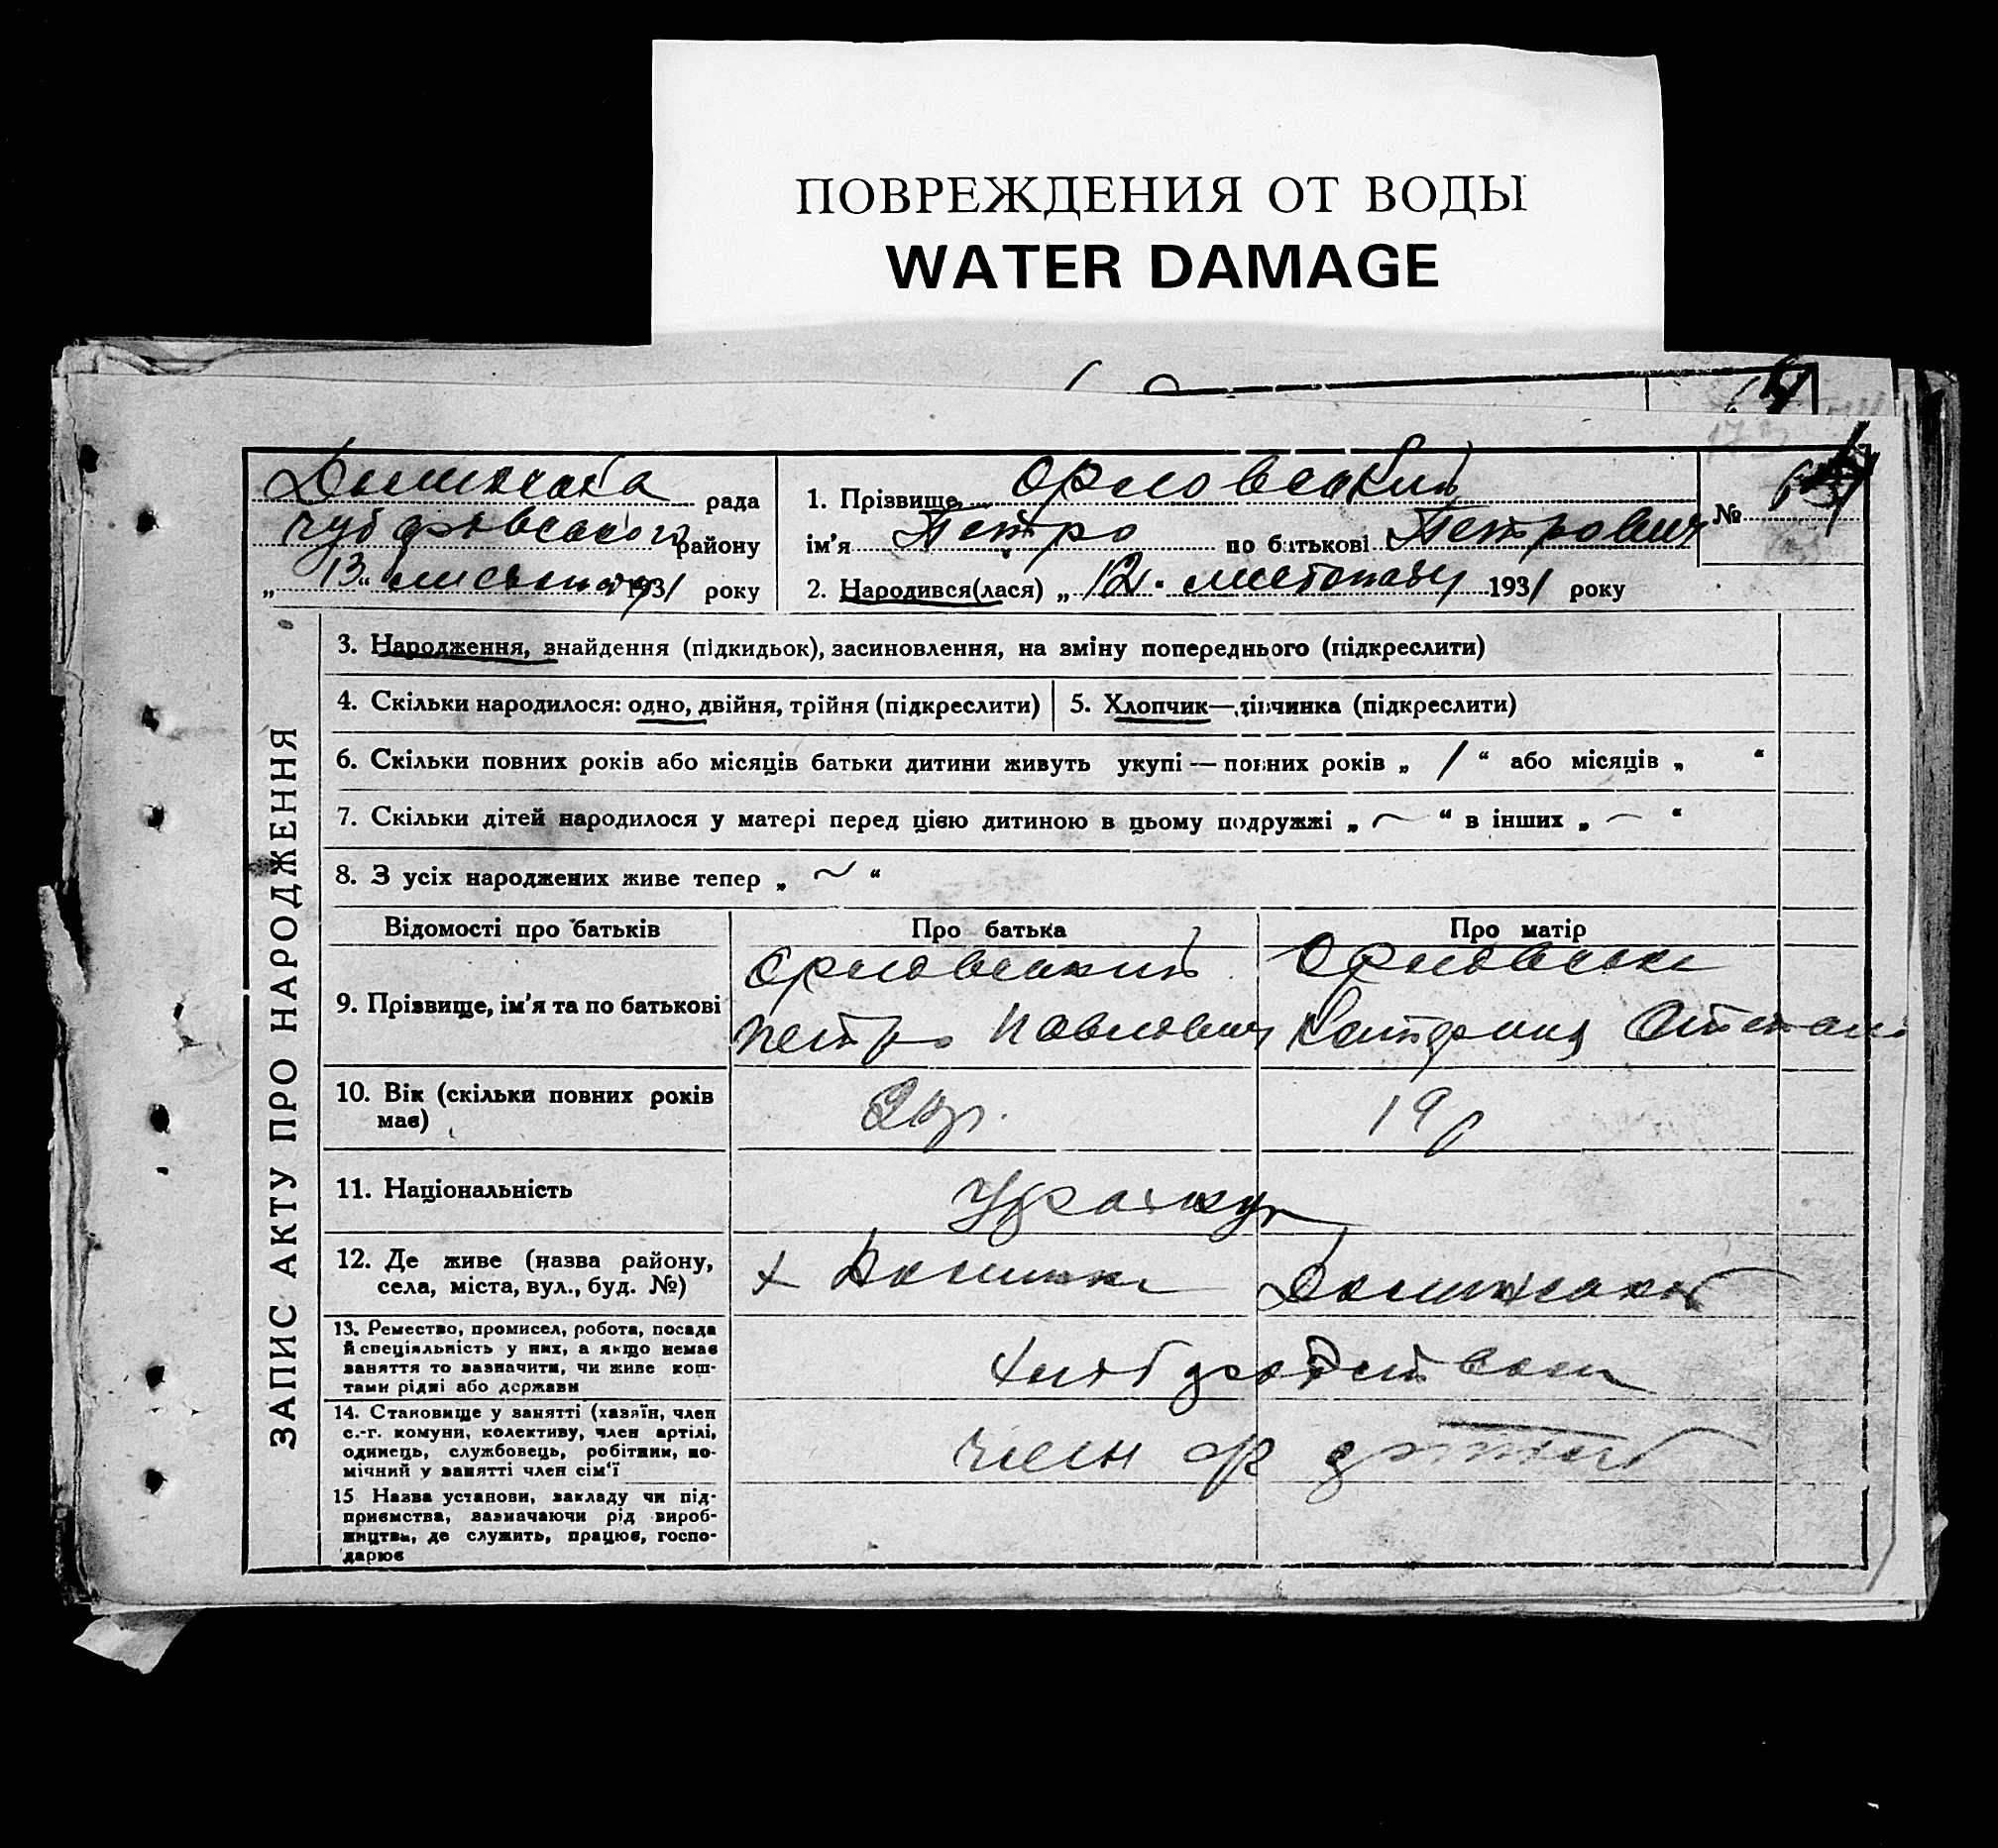 ПОВРЕЖДЕНИЯ ОТ ВОДЫ
WATER DAMAGE
рада
району
„ 13 “ листопаду 1931 року
1. Прізвище Орловський
ім'я Петро по батькові Петрович
№
2. Народився(лася) „ 12 “ листопаду 1931 року
ЗАПИС АКТУ ПРО НАРОДЖЕННЯ
3. Народження, знайдення (підкидьок), засиновлення, на зміну попереднього (підкреслити)
4. Скільки народилося: одно, двійня, трійня (підкреслити)
5. Хлопчик—дівчинка (підкреслити)
6. Скільки повних років або місяців батьки дитини живуть укупі — повних років „ 1 “ або місяців „ “
7. Скільки дітей народилося у матері перед цією дитиною в цьому подружжі „ — “ в інших „ — “
8. З усіх народжених живе тепер „ ~ “
Відомості про батьків
Про батька
Про матір
9. Прізвище, ім'я та по батькові
Орловський
Петро Павлович
Орловська
10. Вік (скільки повних років
має)
19 р
11. Національність
12. Де живе (назва району,
села, міста, вул., буд. №)
13. Ремество, промисел, робота, посада
й спеціяльність у них, а якщо немає
заняття то зазначити, чи живе кош-
тами рідні або держави
14. Становище у занятті (хазяїн, член
с.-г. комуни, колективу, член артілі,
одинець, службовець, робітник, по-
мічний у занятті член сім'ї
член
15 Назва установи, закладу чи під-
приємства, зазначаючи рід вироб-
ництва, де служить, працює, госпо-
дарює